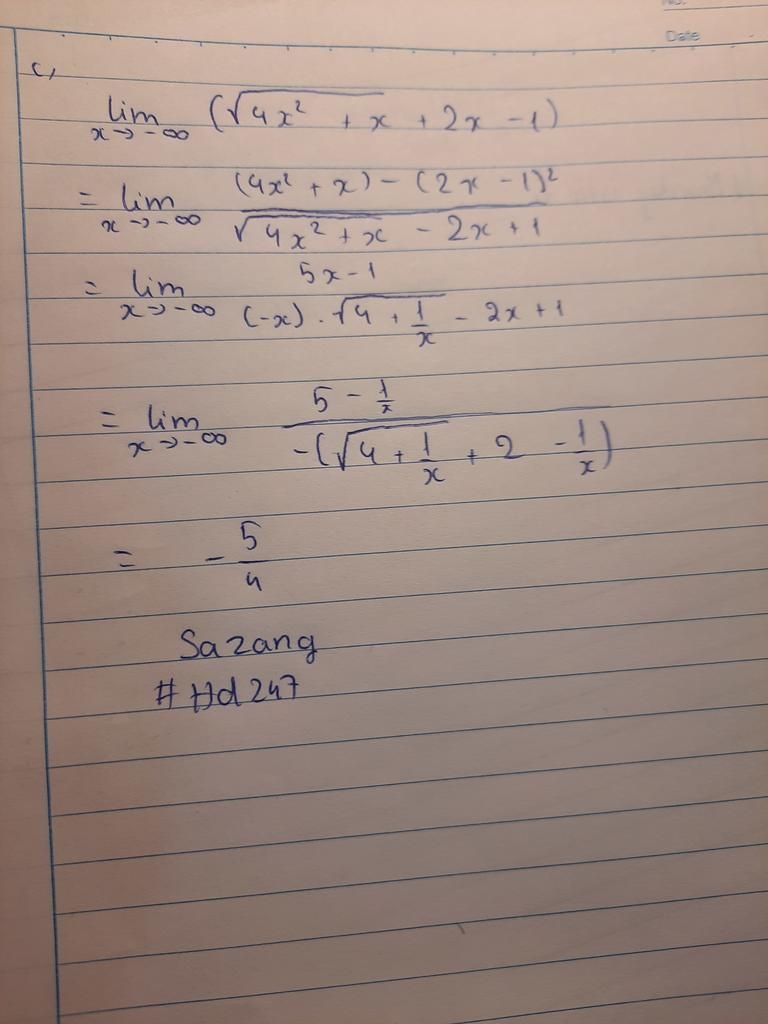 Date
c,
lim x→-∞ (√(4x² + x) + 2x - 1)
= lim x→-∞ ((4x² + x) - (2x - 1)²) / (√(4x² + x) - 2x + 1)
= lim x→-∞ (5x - 1) / ((-x) . √(4 + 1/x) - 2x + 1)
= lim x→-∞ (5 - 1/x) / (-(√(4 + 1/x) + 2 - 1/x))
= - 5/4
Sazang
# Hd247